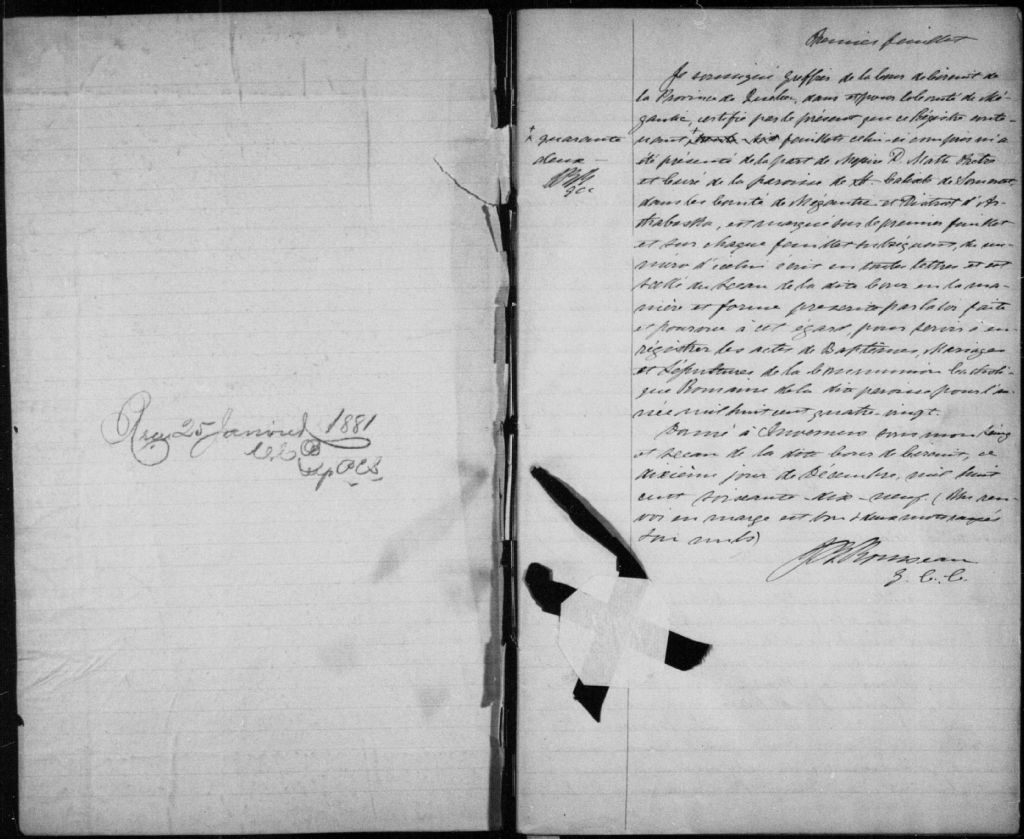 Reçu 25 Janvier 1881
Premier feuillet
Je soussigné greffier de la Cour de Circuit de
la Province de Quebec, dans et pour le Comté de Mé-
gantic, certifie par le présent que ce Régistre conte-
nant + feuillets celui-ci compris m'a
été présenté de la part de Messire Ptre
et Curé de la paroisse de St. Calixte de Somerset,
dans les Comté de Mégantic et District d'Ar-
thabaska, est marqué sur le premier feuillet
et sur chaque feuillet subséquent, du nu-
méro d'icelui écrit en toutes lettres et est
scellé du Sceau de la dite Cour en la ma-
nière et forme prescrite par la loi faite
et pourvue à cet égard, pour servir à en-
régistrer les actes de Baptêmes, Mariages
et Sépultures de la Communion Catholi-
que Romaine de la dite paroisse pour l'an-
née mil huit cent quatre-vingt.
Donné à Inverness sous mon seing
et Sceau de la dite Cour de Circuit, ce
dixième jour de Décembre, mil huit
cent soixante-dix-neuf. (Un ren-
voi en marge est bon & deux mots rayés
son nuls)
Rousseau
G. C. C.
+ quarante
deux -
gcc